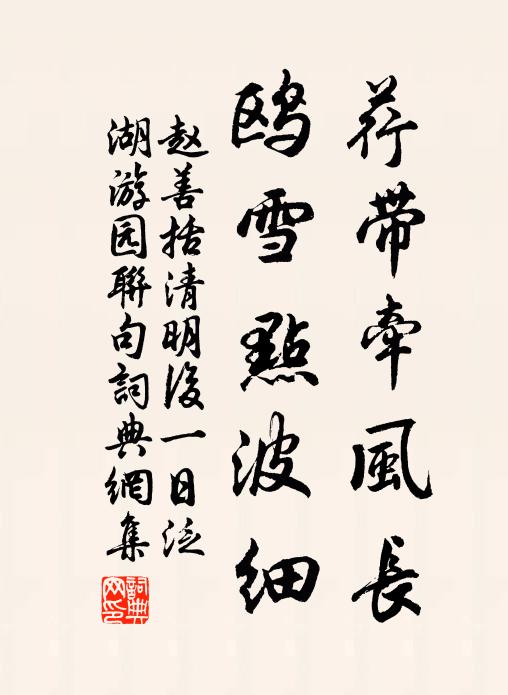 荇带牵風長
鸥雪點波细
赵善括清明後一日泛
湖游园聯句詞典網集